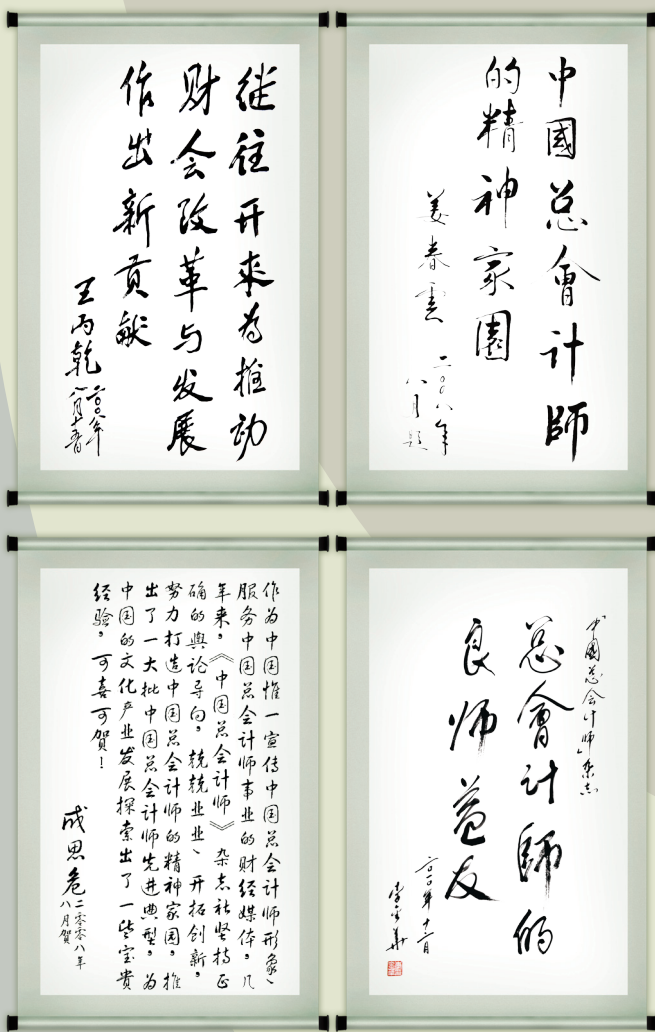 中國总會计師
的精神家園
姜春雲
二〇〇八年
八月题
继往开来为推动
财会改革与发展
作出新贡献
王丙乾
二〇〇八年
八月十五日
《中國总会计师》杂志
总會计師的
良师益友
李金華
二〇一〇年十二月
作为中国惟一宣传中国总会计师形象、
服务中国总会计师事业的财经媒体，几
年来，《中国总会计师》杂志社坚持正
确的舆论导向，兢兢业业、开拓创新，
努力打造中国总会计师的精神家园，推
出了一大批中国总会计师先进典型，为
中国的文化产业发展探索出了一些宝贵
经验，可喜可贺！
成思危
二零零八年
八月贺